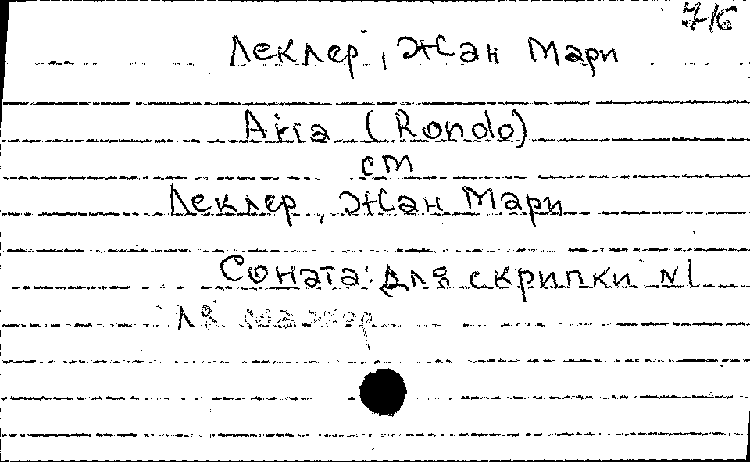 716
Леклер, Жан Мари
Aria (Rondo)
см
Леклер, Жан Мари
Соната: для скрипки №1
ля мажор